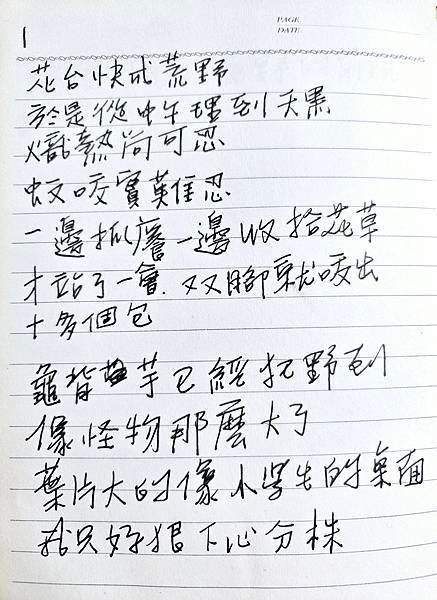 1
PAGE
DATE
花台快成荒野
於是從中午理到天黑
燜熱尚可忍
蚊咬實難忍
一邊抓癢一邊收拾花草
才站了一會.双腳就咬出
十多個包
龜背芋已經狂野到
像怪物那麼大了
葉片大的像小學生的桌面
我只好狠下心分株